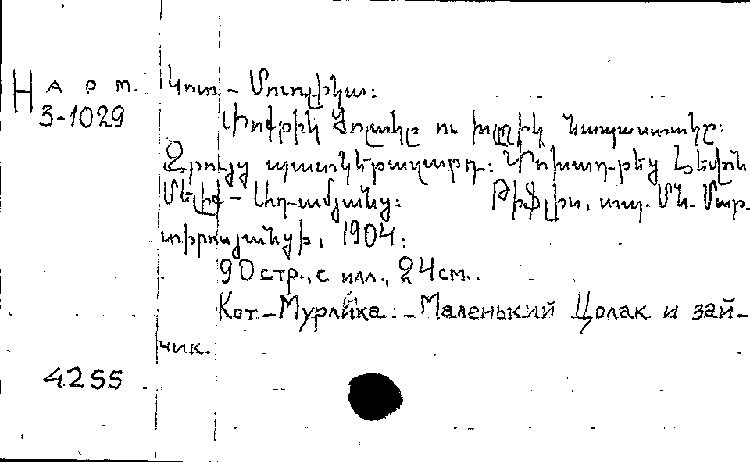 Н арт.
3-1029
Կոտ - Մուրլիկա:
Փոքրիկ Ցոլակը ու խլզիկ Նապաստակը:
Զրույց պատկերազարդ: Փոխադրեց Լեւոն
Մելիք - Ադամյանց: Թիֆլիս, տպ. Մն. Մար-
տիրոսյանցի, 1904:
90 стр., с илл., 24 см.
Кот - Мурлыка. - Маленький Цолак и зай-
чик.
4255